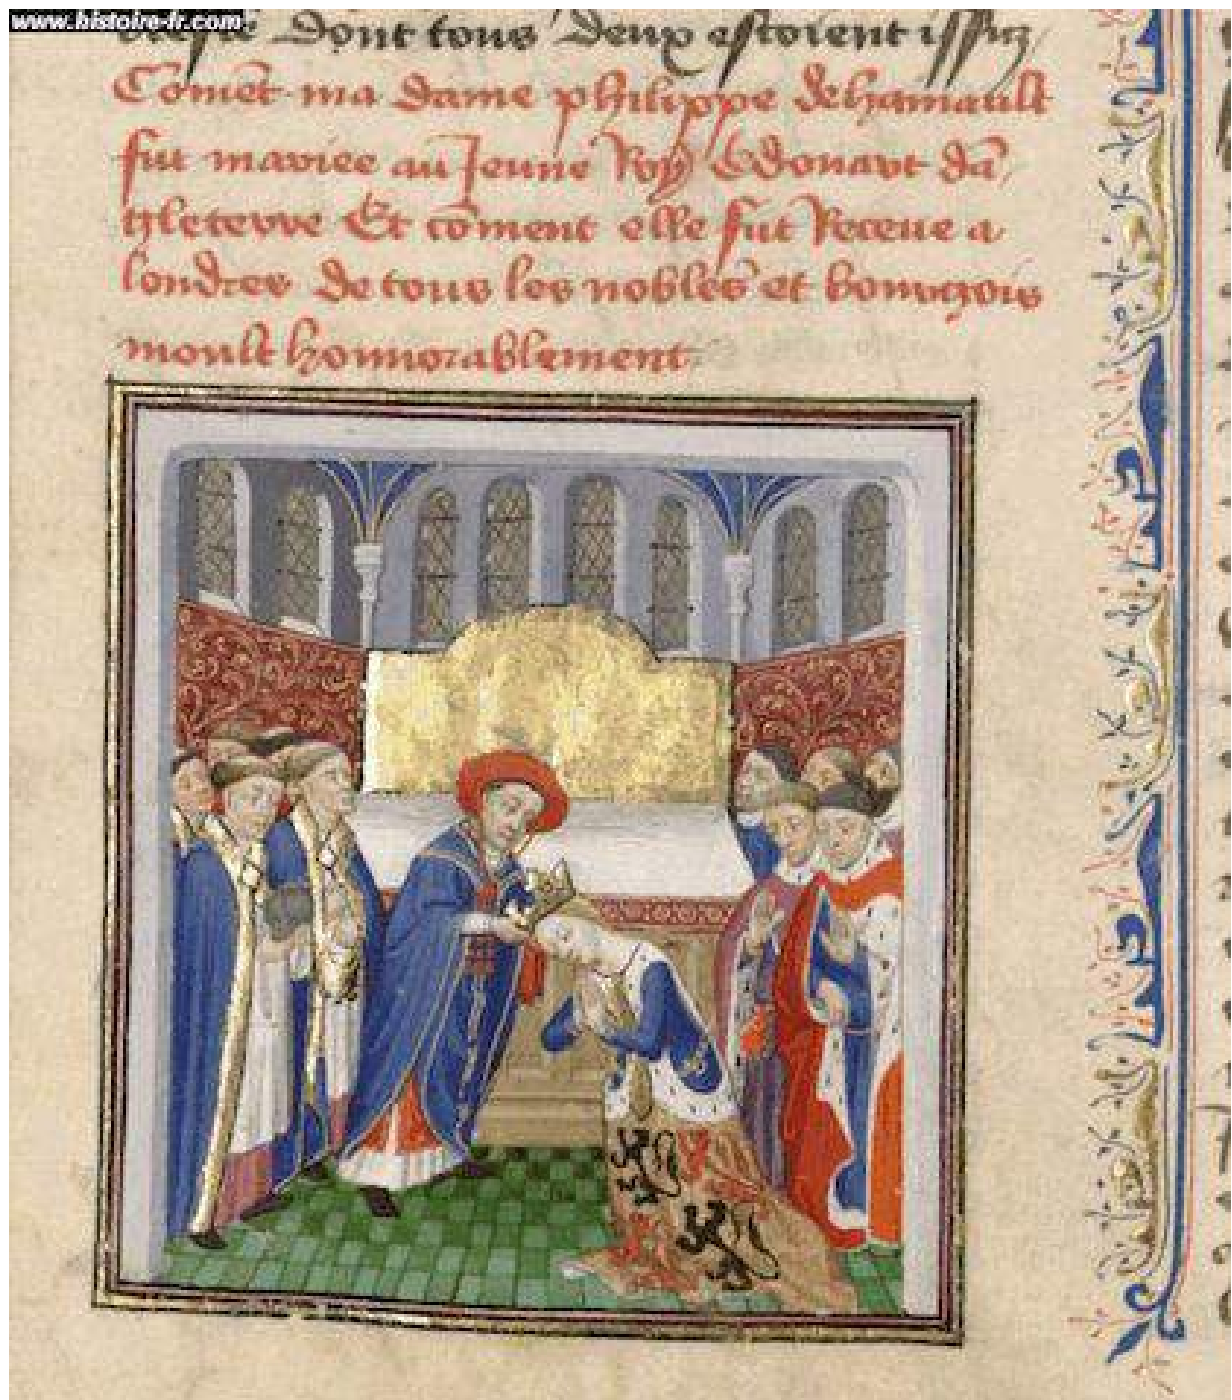 www.histoire-fr.com
dont tous deux estoient issuz
Coment ma dame philippe dehaynault
fut mariee au Jeune Roy Edouart dã
gleterre Et cõment elle fut Receue a
londres de tous les nobles et bourgois
moult honnorablement